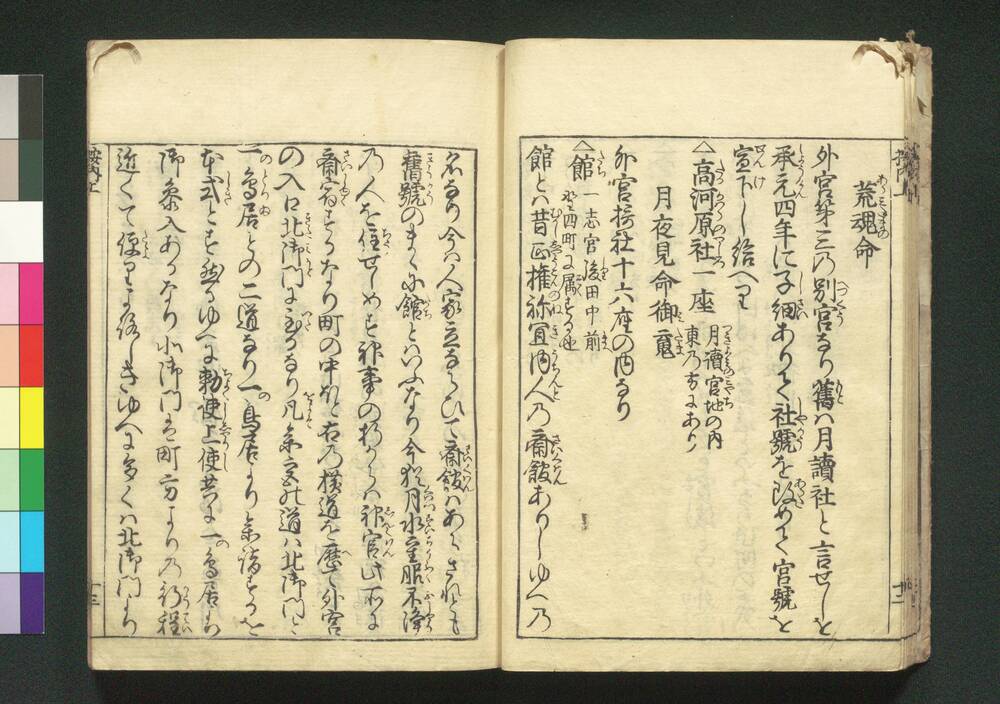 荒魂命
外宮第三の別宮なり舊ハ月讀社と言せしを
承元四年に子細ありて社號を改めて宮號を
宣下し給へり
△高河原社一座 月讀宮地の内
東乃方にあり
月夜見命御䰠
外宮摂社十六座の内なり
△館 一志宮後田中前
野西町に属する也
館とハ昔正権祢宜内人乃齋館ありしゆへ乃
名なり今ハ人家立ならひて齋館ハあらされとも
舊號のまゝに館とハいふなり今猶月水重服不浄
乃人を住せしめす神事の折からハ神官此所に
齋宿するなり町の中ほと右乃横道を歴て外宮
の入口北御門に至るなり凡参宮の道ハ北御門と
一鳥居との二道なり一鳥居より参詣するを
本式とす然るゆへに勅使上使共に一鳥居より
御参入あるなり北御門は町方よりの行程
近くて便よろしきゆへに多くハ北御門より